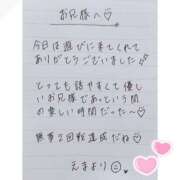 お兄様へ♡
今日は遊びに来てくれて
ありがとうございました
とっても話やすくて優し
いお兄様であっという間
の楽しい時間だった〜♡
無事2回戦達成だね♡
えまより☺